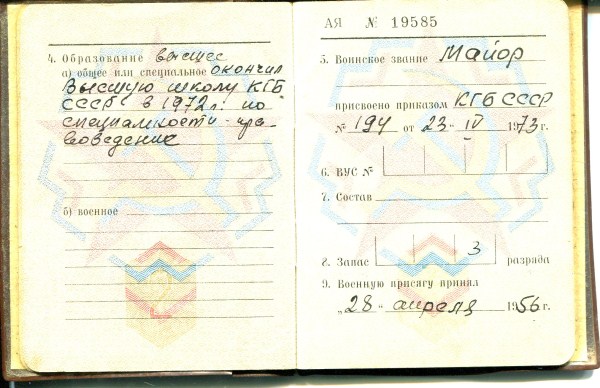 4. Образование высшее
а) общее или специальное окончил
Высшую школу КГБ
СССР в 1972 г. по
специальности - пра-
воведение
б) военное
АЯ № 19585
5. Воинское звание Майор
присвоено приказом КГБ СССР
№ 194 от 23 - IV 1973 г.
6. ВУС №
7. Состав
8. Запас 3 разряда
9. Военную присягу принял
„28“ апреля 1956 г.